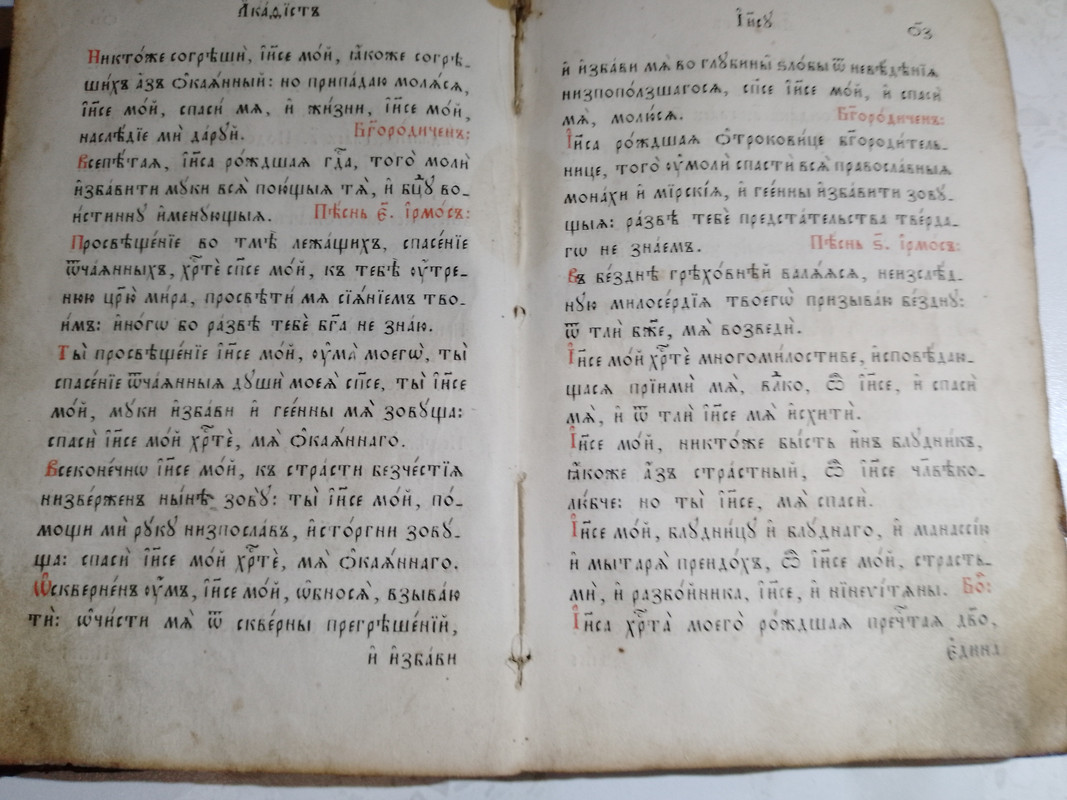 А҆ка́ѳїстъ
Никто́же согрѣшѝ, і҆и҃се мо́й, ꙗ҆́коже согрѣ-
ши́хъ а҆́зъ ѻ҆кая́нный: но припа́даю моля́ся,
і҆и҃се мо́й, спасѝ мѧ̀, и҆ жи́зни, і҆и҃се мо́й,
наслѣ́дїе мѝ да́рꙋй. Бг҃оро́диченъ:
Всепѣ́таѧ, і҆и҃са ро́ждшаѧ гдⷭ҇а, того̀ молѝ
и҆зба́вити мꙋ́ки всѧ̀ пою́щыѧ тѧ̀, и҆ бц҃ꙋ во-
и҆́стиннꙋ и҆менꙋ́ющыѧ. Пѣ́снь є҃. і҆рмо́съ:
Просвѣще́нїе во тмѣ̀ лежа́щихъ, спасе́нїе
ѿча́ѧнныхъ, хрⷭ҇тѐ сп҃се мо́й, къ тебѣ̀ ᲂу҆́тре-
нюю цр҃ю̀ ми́ра, просвѣти́ мѧ сїѧ́нїемъ тво-
и́мъ: и҆но́гѡ бо ра́звѣ тебѐ бг҃а не зна́ю.
Ты̀ просвѣще́нїе і҆и҃се мо́й, ᲂу҆ма̀ моегѡ̀, ты̀
спасе́нїе ѿча́ѧнныѧ дꙋшѝ моеѧ̀ сп҃се, ты̀ і҆и҃се
мо́й, мꙋ́ки и҆зба́ви и҆ гее́нны мѧ̀ зовꙋ́ща:
спасѝ і҆и҃се мо́й хрⷭ҇тѐ, мѧ̀ ѻ҆каѧ́ннаго.
Всеконе́чнѡ і҆и҃се мо́й, къ стра́сти безче́стїѧ
низве́рженъ ны́нѣ зовꙋ̀: ты̀ і҆и҃се мо́й, по́-
мощи мѝ рꙋ́кꙋ низпосла́въ, и҆сто́ргни зовꙋ́-
ща: спасѝ і҆и҃се мо́й хрⷭ҇тѐ, мѧ̀ ѻ҆каѧ́ннаго.
Ѡ҆скверне́нъ ᲂу҆́мъ, і҆и҃се мо́й, ѡ҆бносѧ̀, взыва́ю
тѝ: ѡ҆чи́сти мѧ̀ ѿ скве́рны прегрѣше́нїй,
и҆ и҆зба́ви
І҆и҃сꙋ
о҃з
и҆ и҆зба́ви мѧ̀ во глꙋбины̀ ѕло́бы ѿ невѣ́дѣнїѧ
низпопо́лзшагосѧ, сп҃се і҆и҃се мо́й, и҆ спасѝ
мѧ̀, молю́сѧ. Бг҃оро́диченъ:
І҆и҃са ро́ждшаѧ ѻ҆трокови́це бг҃ороди́тель-
нице, того̀ ᲂу҆молѝ спасти́ всѧ̀ правосла́вныѧ
мона́хи и҆ мїрскі́ѧ, и҆ гее́нны и҆зба́вити зовꙋ́-
щыѧ: ра́звѣ тебѐ предста́тельства тве́рда-
гѡ не зна́емъ. Пѣ́снь ѕ҃. і҆рмо́съ:
Въ бе́зднѣ грѣхо́внѣй валѧ́ѧсѧ, неизслѣ́д-
нꙋю милосе́рдїѧ твоегѡ̀ призыва́ю бе́зднꙋ:
ѿ тлѝ бж҃е, мѧ̀ возведѝ.
І҆и҃се мо́й хрⷭ҇тѐ многоми́лостиве, и҆сповѣ́даю-
щасѧ прїимѝ мѧ̀, влⷣко, ѽ і҆и҃се, и҆ спасѝ
мѧ̀, и҆ ѿ тлѝ і҆и҃се мѧ̀ и҆схитѝ.
І҆и҃се мо́й, никто́же бы́сть и҆́нъ блꙋдни́къ,
ꙗ҆́коже а҆́зъ стра́стный, ѽ і҆и҃се чл҃вѣко-
лю́бче: но ты̀ і҆и҃се, мѧ̀ спасѝ.
І҆и҃се мо́й, блꙋдни́цꙋ и҆ блꙋ́днаго, и҆ манассі́ю
и҆ мытарѧ̀ преидо́хъ, ѽ і҆и҃се мо́й, страсть-
мѝ, и҆ разбо́йника, і҆и҃се, и҆ нїнеѵі́тѧны. Бо҃:
І҆и҃са хрⷭ҇та̀ моего̀ ро́ждшаѧ пречⷭ҇таѧ дв҃о,
є҆ди́на